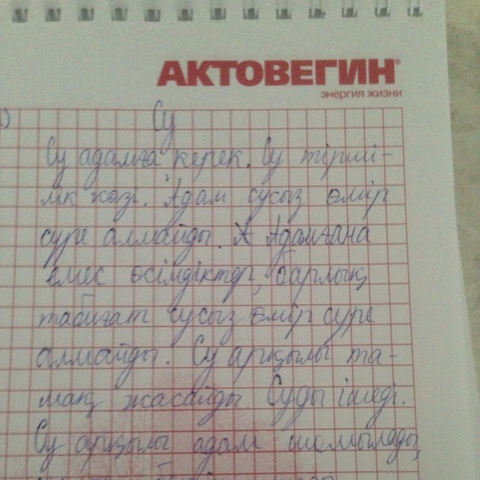 АКТОВЕГИН®
энергия жизни
Су
Су адамға керек. Су тірші-
лік көзі. Адам сусыз өмір
сүре алмайды. Адамғана
емес өсімдіктер, барлық
табиғат сусыз өмір сүре
алмайды. Су арқылы та-
мақ жасайды. Суды ішеді.
Су арқылы адам шомылады,